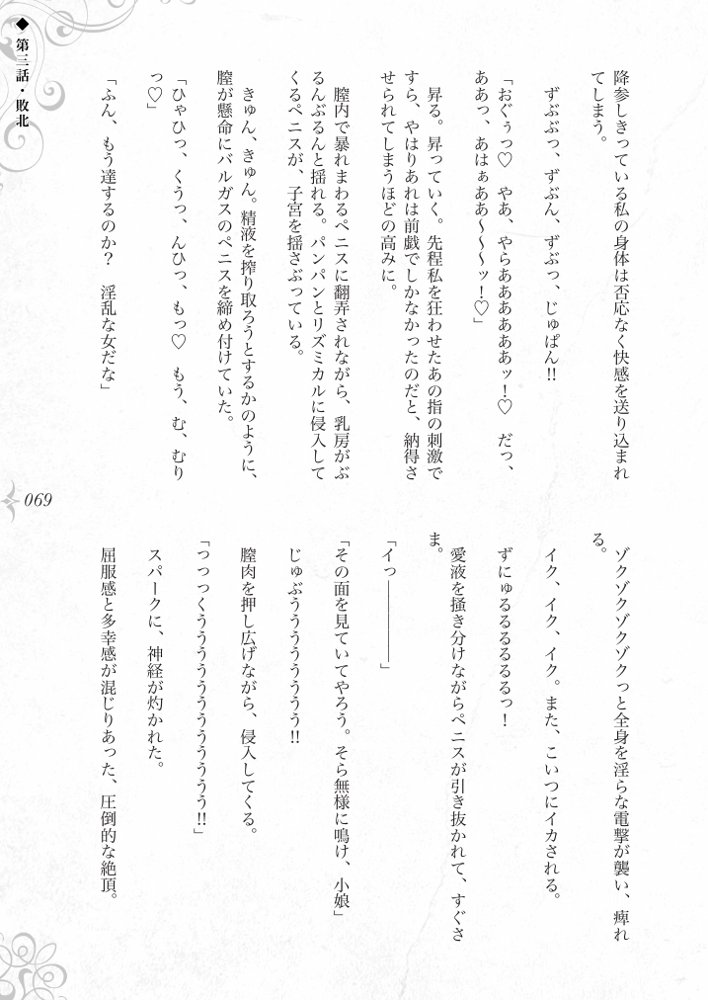 ◆ 第三話・敗北
降参しきっている私の身体は否応なく快感を送り込まれ
てしまう。
ずぶぶっ、ずぶん、ずぶっ、じゅぱん!!
「おぐぅっ♡　やあ、やらああああああッ！♡　だっ、
ああっ、あはぁああ～～～ッ！♡」
昇る。昇っていく。先程私を狂わせたあの指の刺激で
すら、やはりあれは前戯でしかなかったのだと、納得さ
せられてしまうほどの高みに。
膣内で暴れまわるペニスに翻弄されながら、乳房がぶ
るんぶるんと揺れる。パンパンとリズミカルに侵入して
くるペニスが、子宮を揺さぶっている。
きゅん、きゅん。精液を搾り取ろうとするかのように、
膣が懸命にバルガスのペニスを締め付けていた。
「ひゃひっ、くうっ、んひっ、もっ♡　もう、む、むり
っ♡」
「ふん、もう達するのか？　淫乱な女だな」
ゾクゾクゾクゾクっと全身を淫らな電撃が襲い、痺れ
る。
イク、イク、イク。また、こいつにイカされる。
ずにゅるるるるるるっ！
愛液を掻き分けながらペニスが引き抜かれて、すぐさ
ま。
「イっ――――」
「その面を見ていてやろう。そら無様に鳴け、小娘」
じゅぶうううううううう!!
膣肉を押し広げながら、侵入してくる。
「つっっくうううううううううううう!!」
スパークに、神経が灼かれた。
屈服感と多幸感が混じりあった、圧倒的な絶頂。
069